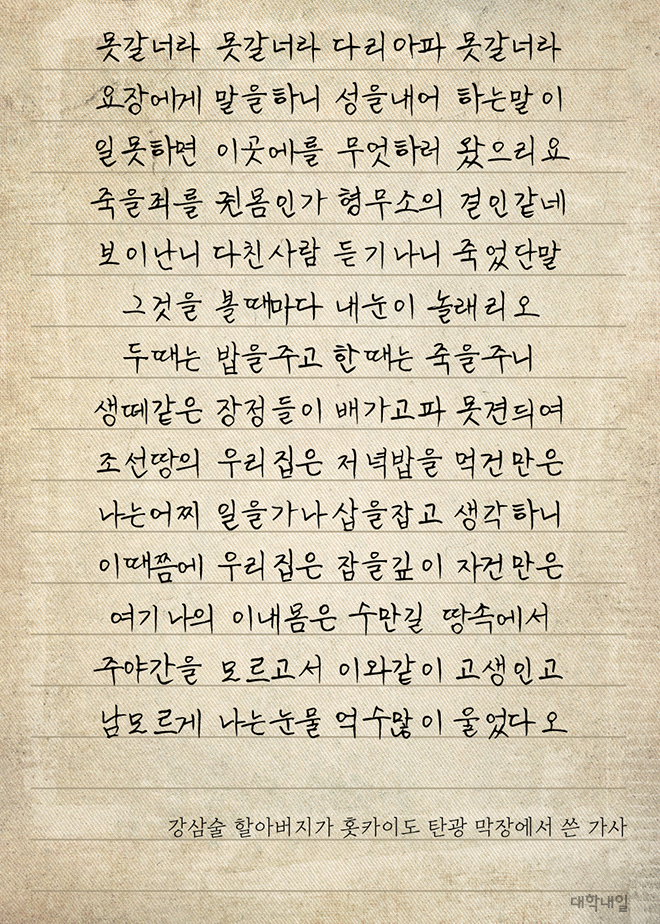 못갈너라 못갈너라 다리아파 못갈너라
요장에게 말을하니 성을내어 하는말이
일못하면 이곳에를 무엇하러 왔으리요
죽을죄를 진몸인가 형무소의 결인같네
보이난니 다친사람 듣기나니 죽었단말
그것을 볼때마다 내눈이 놀래리오
두때는 밥을주고 한때는 죽을주니
생떼같은 장정들이 배가고파 못견듸여
조선땅의 우리집은 저녁밥을 먹건만은
나는어찌 일을가나 삽을잡고 생각하니
이때쯤에 우리집은 잠을깊이 자건만은
여기나의 이내몸은 수만길 땅속에서
주야간을 모르고서 이와같이 고생인고
남모르게 나는눈물 억수많이 울었다오
강삼술 할아버지가 홋카이도 탄광 막장에서 쓴 가사
대학내일